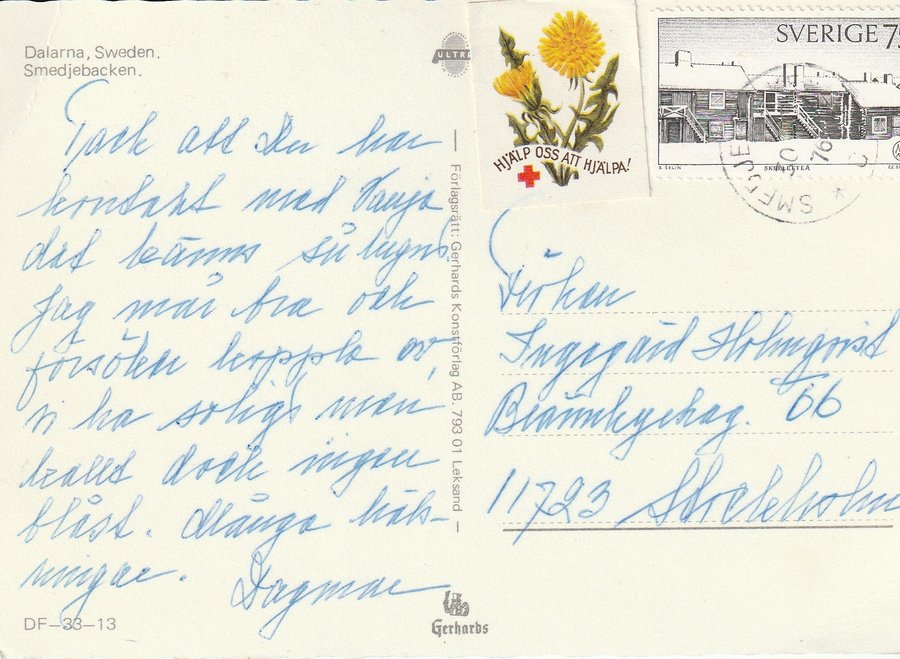 Dalarna, Sweden.
Smedjebacken.
Tack att Du har
kontakt med Vanja
det känns så lugnt.
Jag mår bra och
försöker koppla av,
vi ha soligt men
kallt dock ingen
blåst. Många häls-
ningar. Dagmar
DF—33—13
ULTRA
— Förlagsrätt: Gerhards Konstförlag AB. 793 01 Leksand —
Gerhards
HJÄLP OSS ATT HJÄLPA!
SVERIGE 75
SKELLEFTEÅ
SMEDJE
76
Fröken
Ingegärd Holmqvist
66
11723 Stockholm